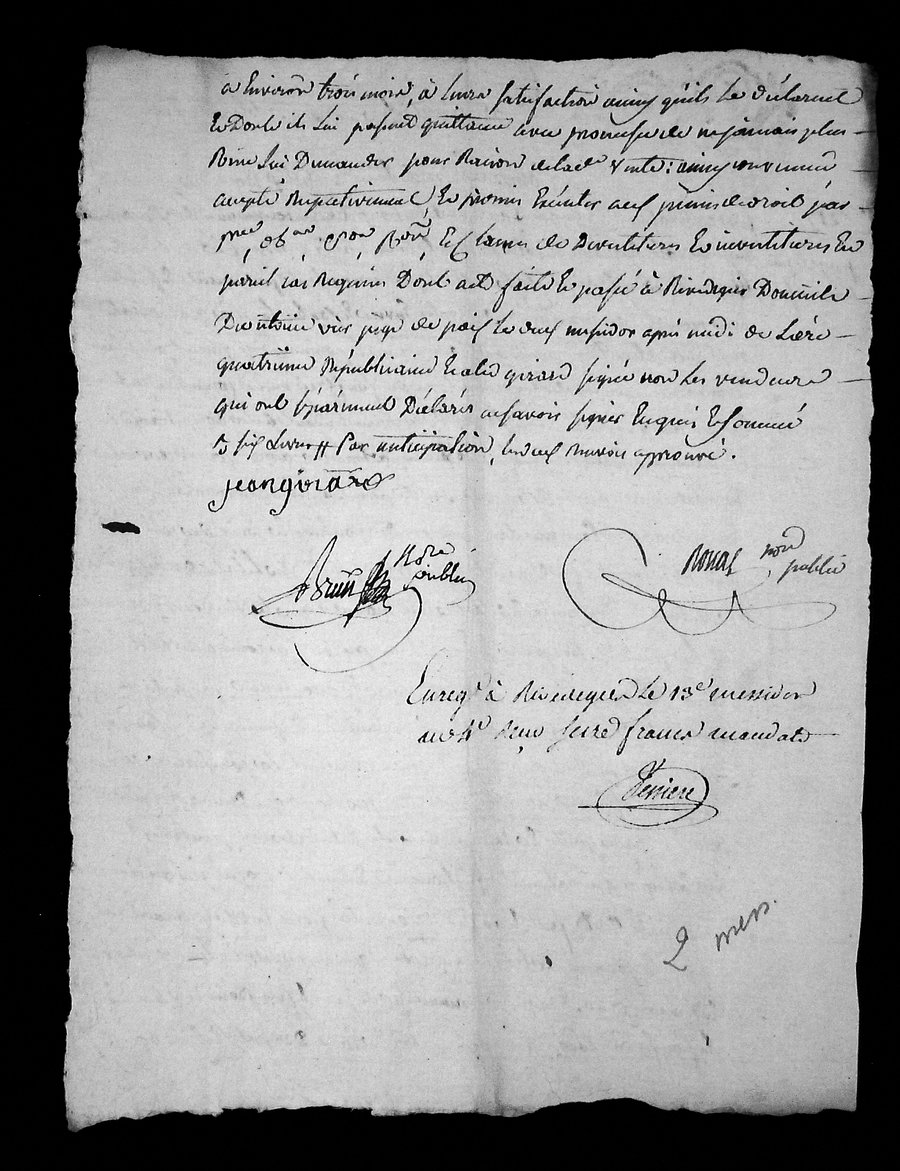 a Environ trois mois, a leur satisfaction ainsy quils le déclarent
Et Dont ils lui passent quittance avec promesse de ne jamais plus
Rien lui Demander pour Raison de lad. Vente: ainsy convenu
accepté Respectivement, Et promis Exécuter aux peines de droit par
Et Clauses de Devetitures Et investitures En
pareil cas Requises Dont acte faite Et passé à Rivedegier Domicile
Dantoine juge de paix le deux messidor après midi de Lère
quatrième Républicaine Et a led girard signé non les vendeurs
qui ont séparément Déclarés ne savoir signer Enquis Et sommé
Par anticipation, Les deux Renvois approuvé.
jean girard
Brun Nore public
Rouat nore public
Enregé à Rivedegier Le 13e messidor
an 4e Reçu seize francs mandats
2 mess.